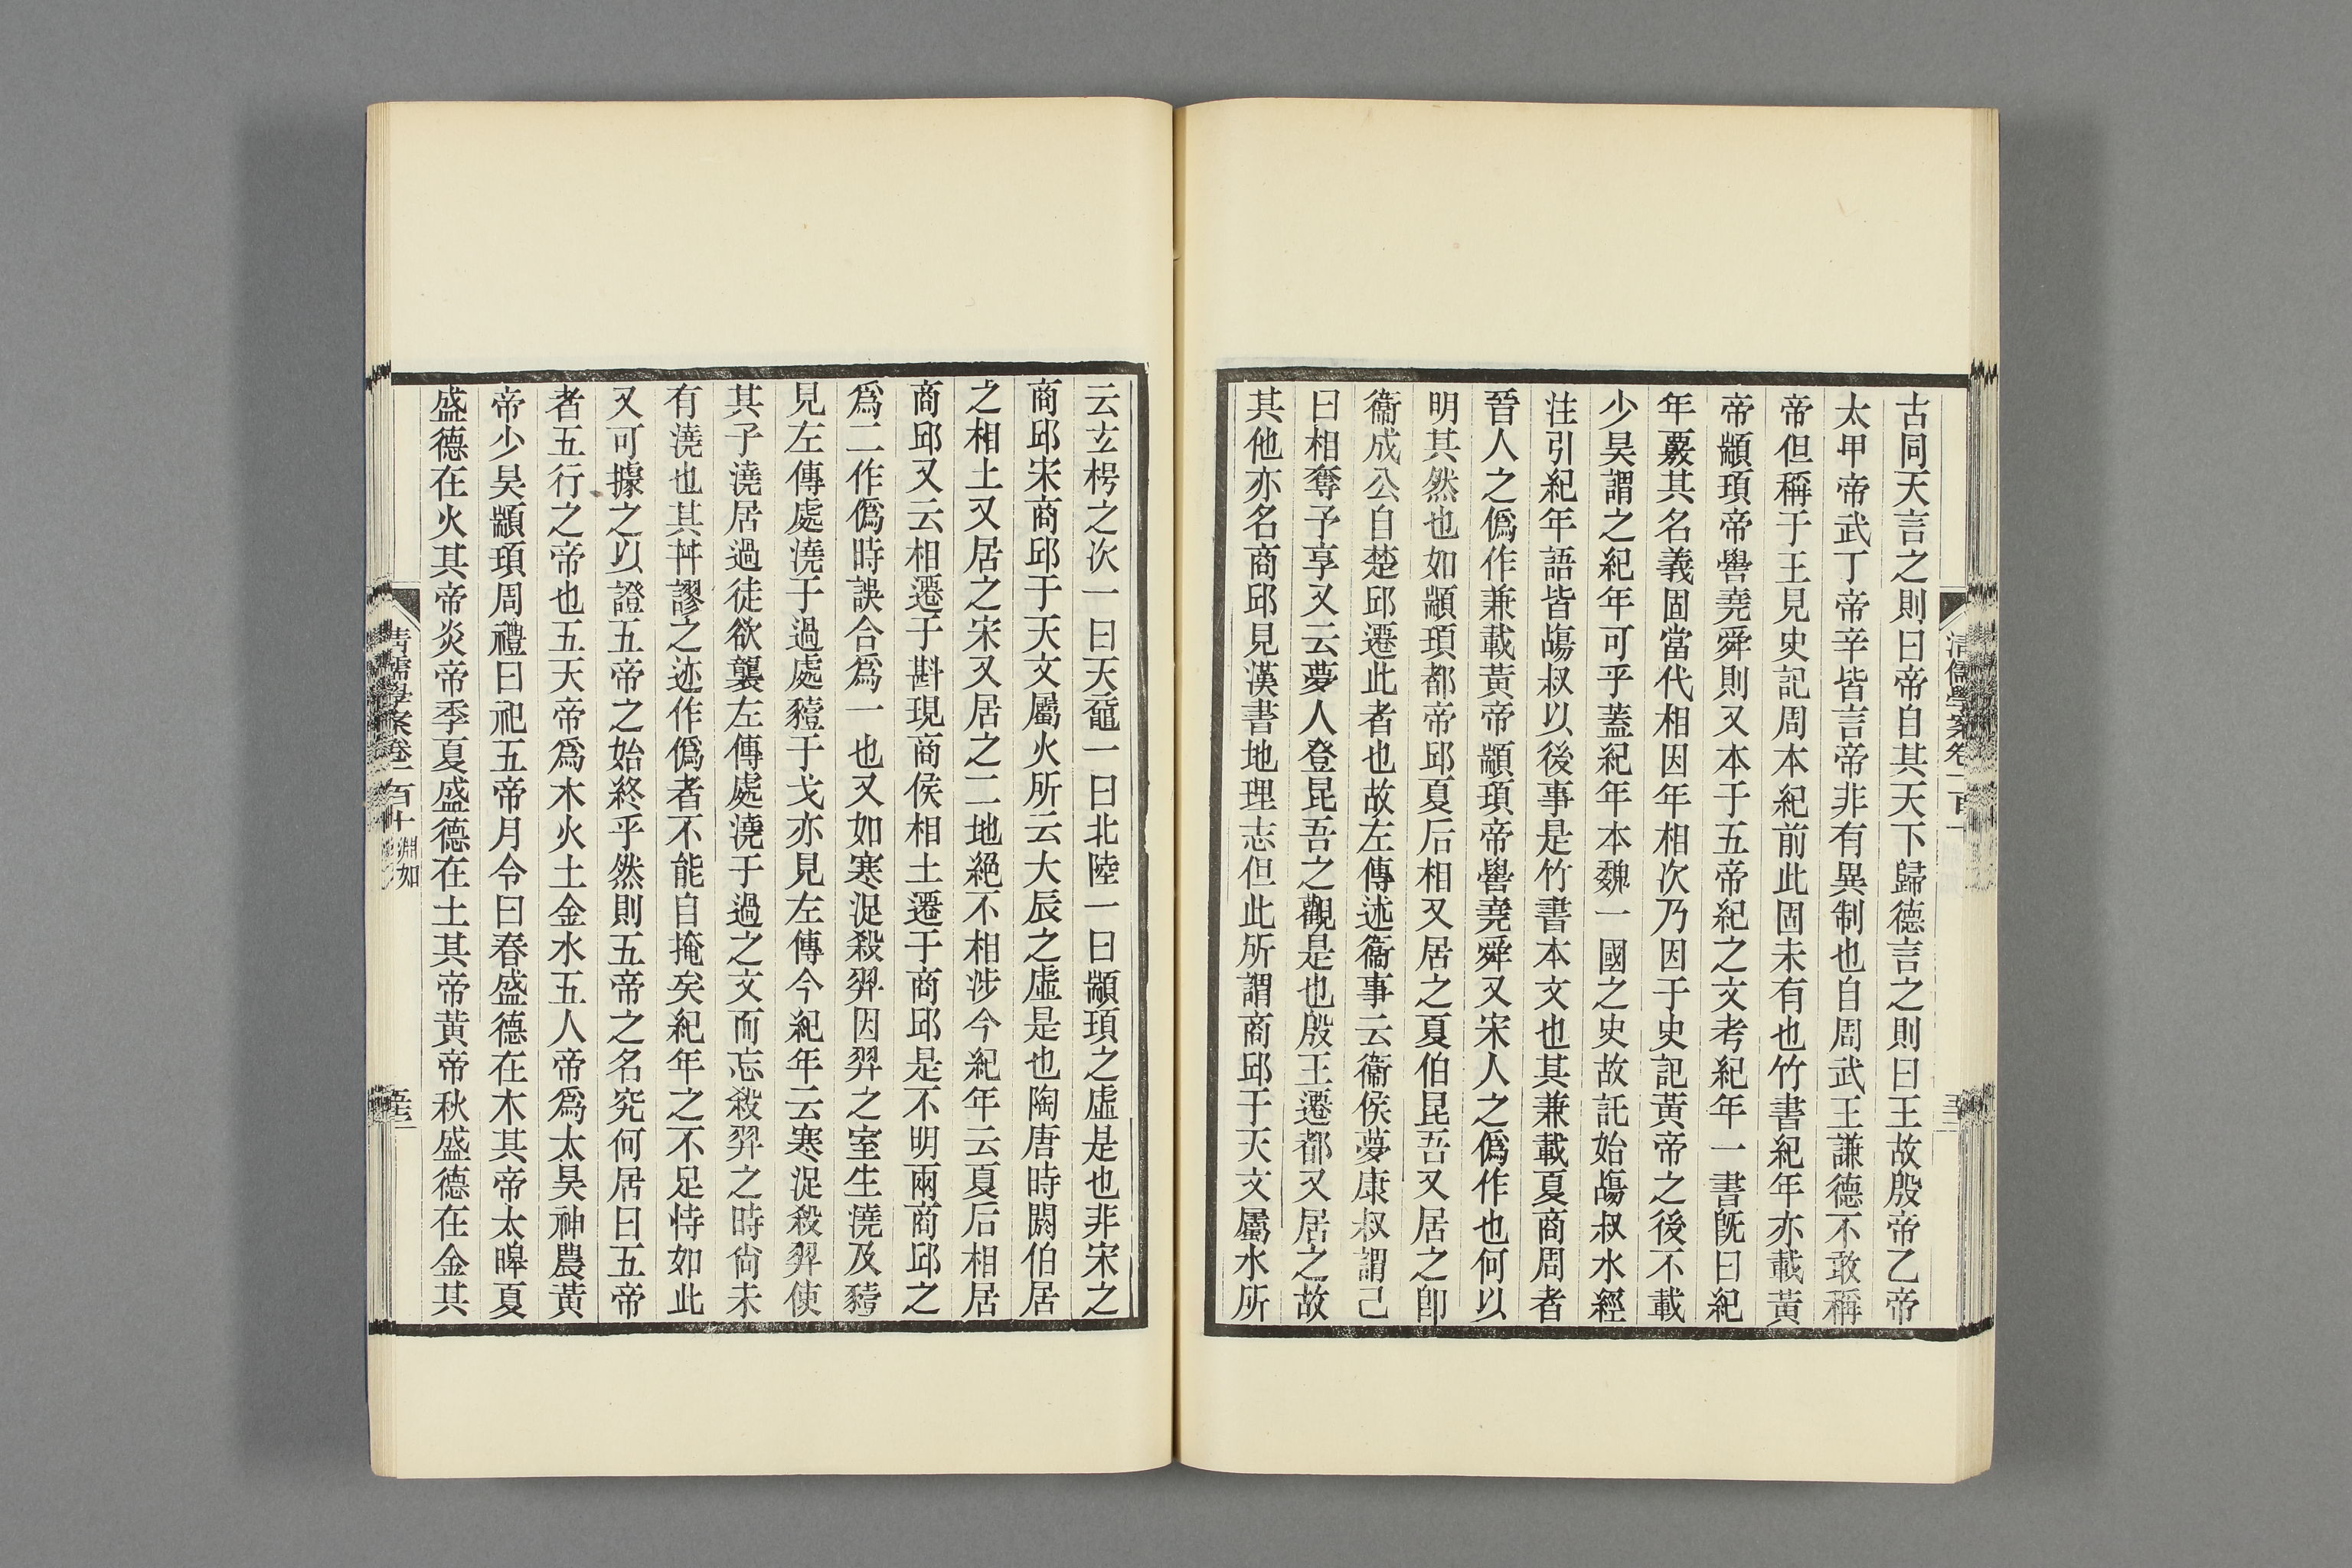 古同天言之則曰帝自其天下歸德言之則曰王故殷帝乙帝
太甲帝武丁帝辛皆言帝非有異制也自周武王謙德不敢稱
帝但稱于王見史記周本紀前此固未有也竹書紀年亦載黃
帝顓頊帝嚳堯舜則又本于五帝紀之文考紀年一書旣曰紀
年覈其名義固當代相因年相次乃因于史記黃帝之後不載
少昊謂之紀年可乎蓋紀年本魏一國之史故託始殤叔水經
注引紀年語皆殤叔以後事是竹書本文也其兼載夏商周者
晉人之僞作兼載黃帝顓頊帝嚳堯舜又宋人之僞作也何以
明其然也如顓頊都帝邱夏后相又居之夏伯昆吾又居之卽
衞成公自楚邱遷此者也故左傳述衞事云衞侯夢康叔謂己
曰相奪予享又云夢人登昆吾之觀是也殷王遷都又居之故
其他亦名商邱見漢書地理志但此所謂商邱于天文屬水所
云玄枵之次一曰天黿一曰北陸一曰顓頊之虛是也非宋之
商邱宋商邱于天文屬火所云大辰之虛是也陶唐時閼伯居
之相土又居之宋又居之二地絕不相涉今紀年云夏后相居
商邱又云相遷于斟現商侯相土遷于商邱是不明兩商邱之
爲二作僞時誤合爲一也又如寒浞殺羿因羿之室生澆及豷
見左傳處澆于過處豷于戈亦見左傳今紀年云寒浞殺羿使
其子澆居過徒欲襲左傳處澆于過之文而忘殺羿之時尙未
有澆也其舛謬之迹作僞者不能自掩矣紀年之不足恃如此
又可據之以證五帝之始終乎然則五帝之名究何居曰五帝
者五行之帝也五天帝爲木火土金水五人帝爲太昊神農黃
帝少昊顓頊周禮曰祀五帝月令曰春盛德在木其帝太皞夏
盛德在火其帝炎帝季夏盛德在土其帝黃帝秋盛德在金其
清儒學案卷一百十
淵如